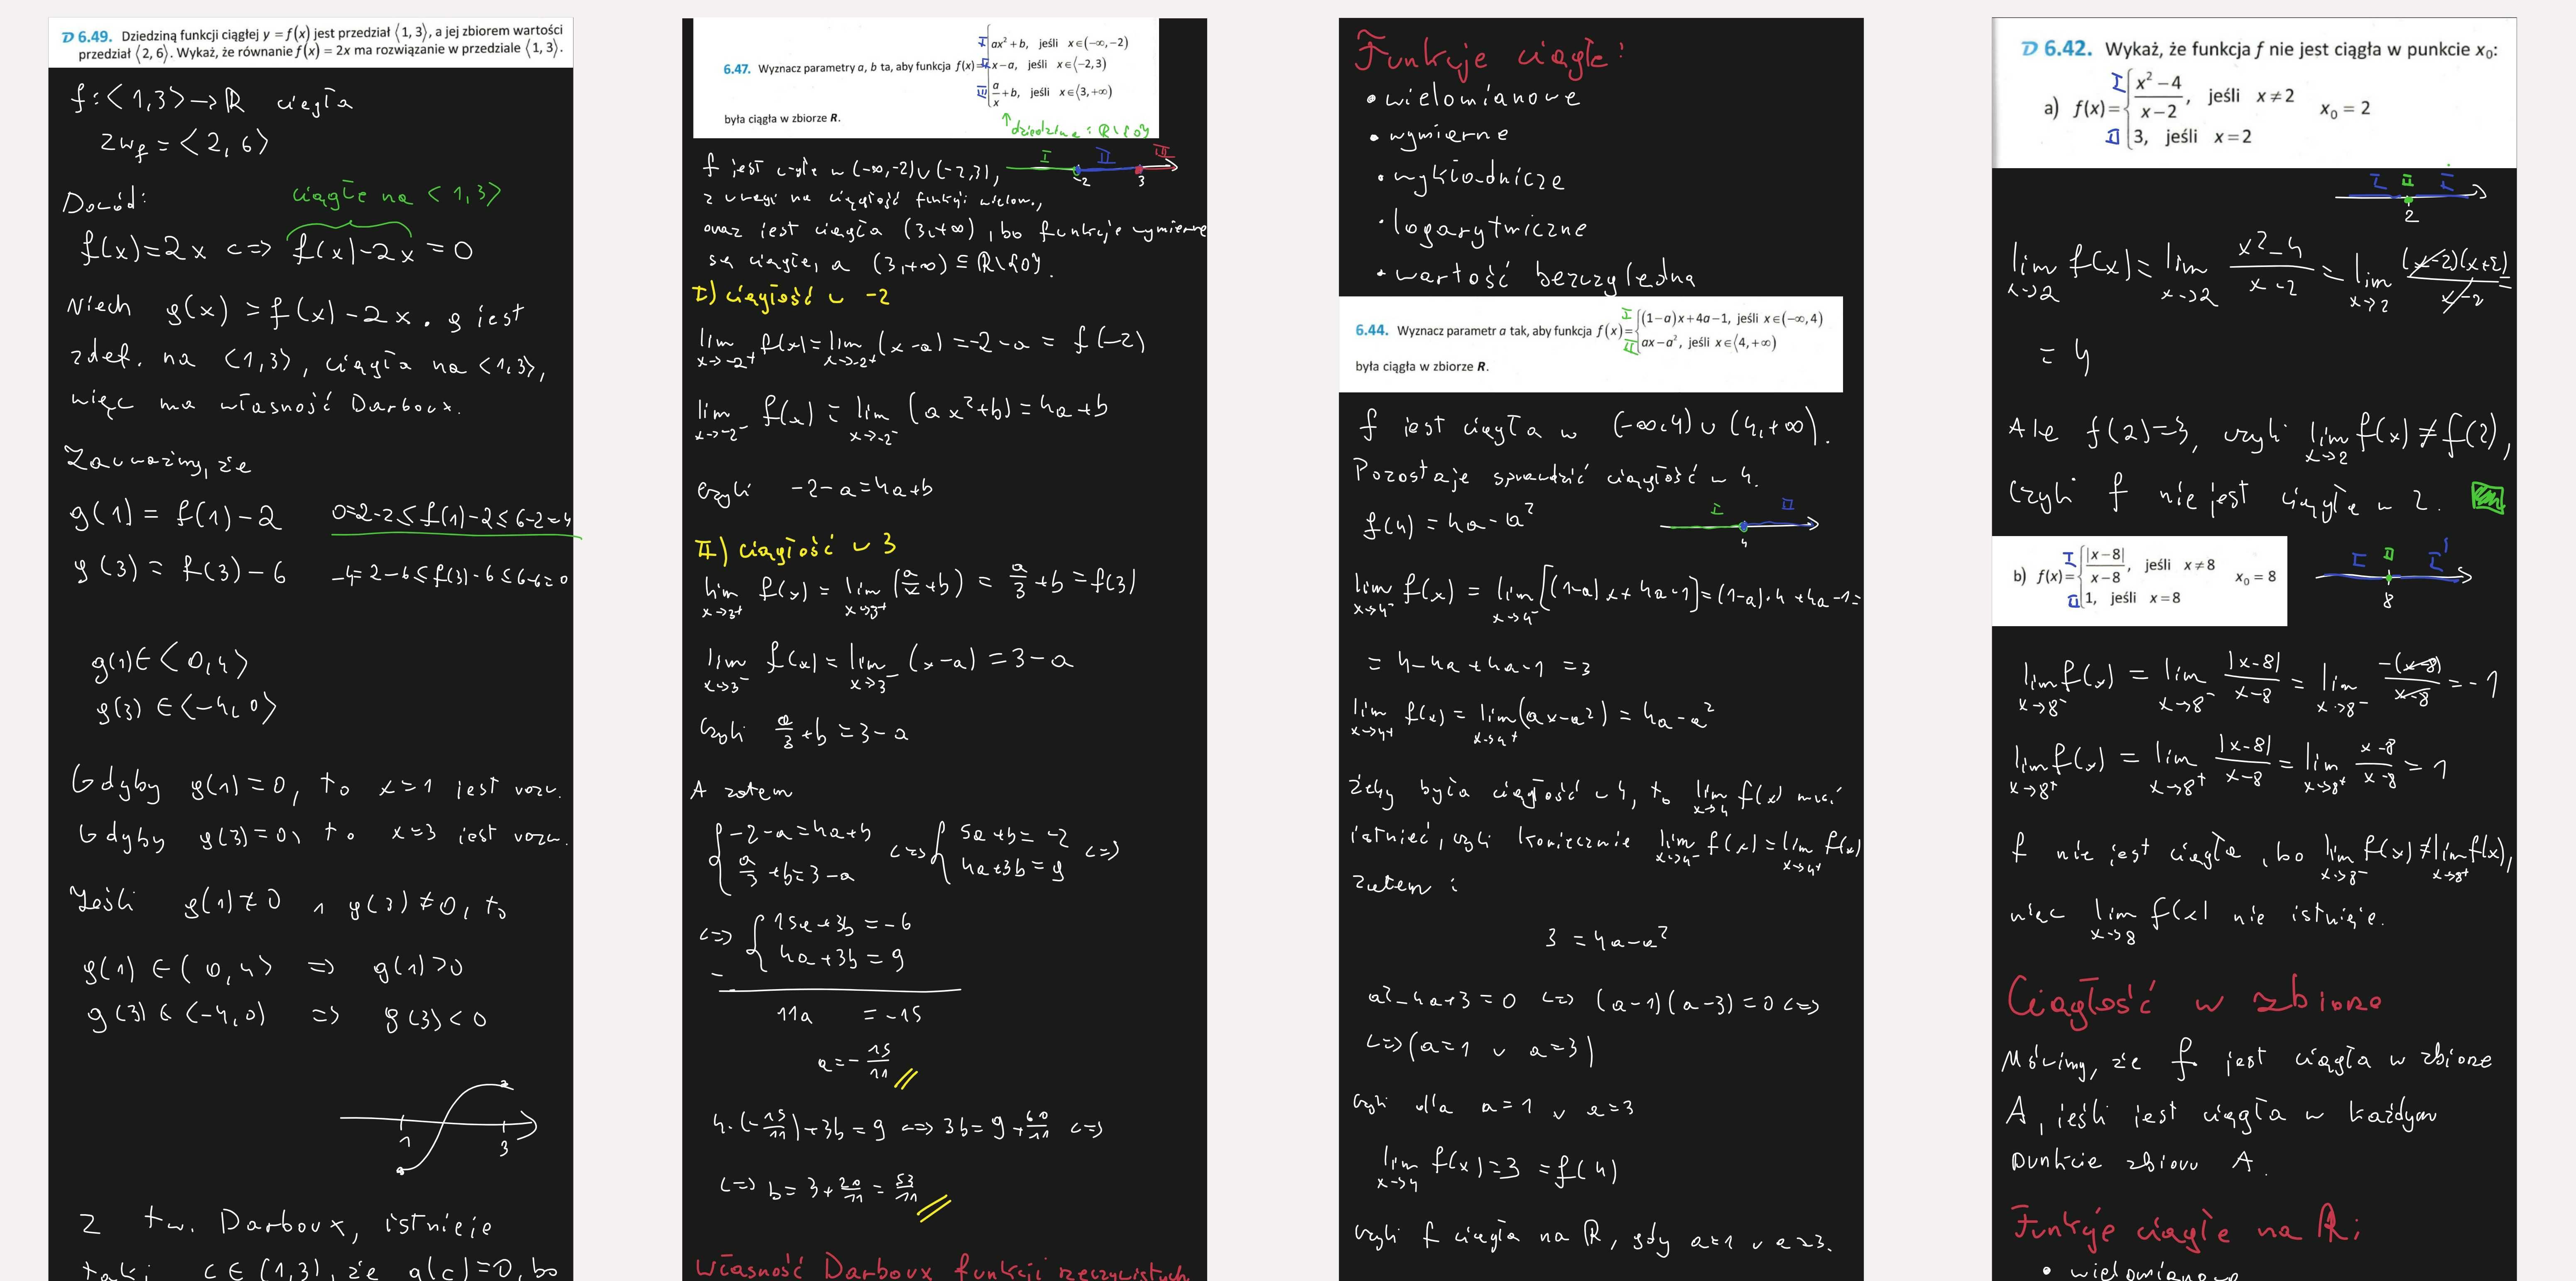 D 6.49. Dziedziną funkcji ciągłej y = f(x) jest przedział ⟨1, 3⟩, a jej zbiorem wartości
przedział ⟨2, 6⟩. Wykaż, że równanie f(x) = 2x ma rozwiązanie w przedziale ⟨1, 3⟩.
f: <1,3> → ℝ ciągła
zw_f = <2,6>
Dowód:
ciągłe na <1,3>
f(x)=2x <=> f(x)-2x = 0
Niech g(x) = f(x)-2x. g jest
zdef. na <1,3>, ciągła na <1,3>,
więc ma własność Darboux.
Zauważmy, że
g(1) = f(1)-2 0=2-2≤f(1)-2≤6-2=4
g(3) = f(3)-6 -4=2-6≤f(3)-6≤6-6=0
g(1)∈<0,4>
g(3)∈<-4,0>
Gdyby g(1)=0, to x=1 jest rozw.
Gdyby g(3)=0, to x=3 jest rozw.
Jeśli g(1)≠0 ∧ g(3)≠0, to
g(1)∈(0,4> => g(1)>0
g(3)∈<-4,0) => g(3)<0
1 3
Z tw. Darboux, istnieje
taki c∈(1,3), że g(c)=0, bo
6.47. Wyznacz parametry a, b ta, aby funkcja f(x)=
I ax² + b, jeśli x∈(−∞,−2)
II x−a, jeśli x∈⟨−2,3)
III a/x + b, jeśli x∈⟨3,+∞)
była ciągła w zbiorze R.
↑ dziedzina: ℝ\{0}
f jest ciągła w (-∞,-2)∪(-2,3),
I II III
-2 3
z uwagi na ciągłość funkcji wielom.,
oraz jest ciągła (3,+∞), bo funkcje wymierne
są ciągłe, a (3,+∞) ⊆ ℝ\{0}.
I) ciągłość w -2
lim x→-2⁺ f(x) = lim x→-2⁺ (x-a) = -2-a = f(-2)
lim x→-2⁻ f(x) = lim x→-2⁻ (ax²+b) = 4a+b
czyli -2-a=4a+b
II) ciągłość w 3
lim x→3⁺ f(x) = lim x→3⁺ (a/x+b) = a/3+b = f(3)
lim x→3⁻ f(x) = lim x→3⁻ (x-a) = 3-a
Czyli a/3+b=3-a
A zatem
{-2-a=4a+b <=> {5a+b=-2 <=>
{a/3+b=3-a {4a+3b=9
<=> {15a+3b=-6
- {4a+3b=9
11a = -15
a=-15/11
4·(-15/11)+3b=9 <=> 3b=9+60/11 <=>
<=> b=3+20/11=53/11
Własność Darboux funkcji rzeczywistych
Funkcje ciągłe:
• wielomianowe
• wymierne
• wykładnicze
• logarytmiczne
• wartość bezwzględna
6.44. Wyznacz parametr a tak, aby funkcja f(x)=
I (1−a)x+4a−1, jeśli x∈(−∞,4)
II ax−a², jeśli x∈⟨4,+∞)
była ciągła w zbiorze R.
f jest ciągła w (-∞,4)∪(4,+∞).
Pozostaje sprawdzić ciągłość w 4.
f(4)=4a-a²
I II
4
lim x→4⁻ f(x) = lim x→4⁻ [(1-a)x+4a-1] = (1-a)·4+4a-1=
= 4-4a+4a-1 = 3
lim x→4⁺ f(x) = lim x→4⁺ (ax-a²) = 4a-a²
Żeby była ciągłość w 4, to lim x→4 f(x) musi
istnieć, czyli koniecznie lim x→4⁻ f(x) = lim x→4⁺ f(x)
Zatem:
3 = 4a-a²
a²-4a+3=0 <=> (a-1)(a-3)=0 <=>
<=> (a=1 ∨ a=3)
Czyli dla a=1 ∨ a=3
lim x→4 f(x)=3=f(4)
czyli f ciągła na ℝ, gdy a=1 ∨ a=3.
D 6.42. Wykaż, że funkcja f nie jest ciągła w punkcie x₀:
a) f(x)= I (x²−4)/(x−2), jeśli x≠2 x₀ = 2
II 3, jeśli x=2
I II I
2
lim x→2 f(x) = lim x→2 (x²-4)/(x-2) = lim x→2 (x-2)(x+2)/(x-2) =
= 4
Ale f(2)=3, czyli lim x→2 f(x) ≠ f(2),
Czyli f nie jest ciągłe w 2.
b) f(x)= I |x−8|/(x−8), jeśli x≠8 x₀ = 8
II 1, jeśli x=8
I II I
8
lim x→8⁻ f(x) = lim x→8⁻ |x-8|/(x-8) = lim x→8⁻ -(x-8)/(x-8) = -1
lim x→8⁺ f(x) = lim x→8⁺ |x-8|/(x-8) = lim x→8⁺ (x-8)/(x-8) = 1
f nie jest ciągła, bo lim x→8⁻ f(x) ≠ lim x→8⁺ f(x),
więc lim x→8 f(x) nie istnieje.
Ciągłość w zbiorze
Mówimy, że f jest ciągła w zbiorze
A, jeśli jest ciągła w każdym
punkcie zbioru A.
Funkcje ciągłe na ℝ:
• wielomianowe